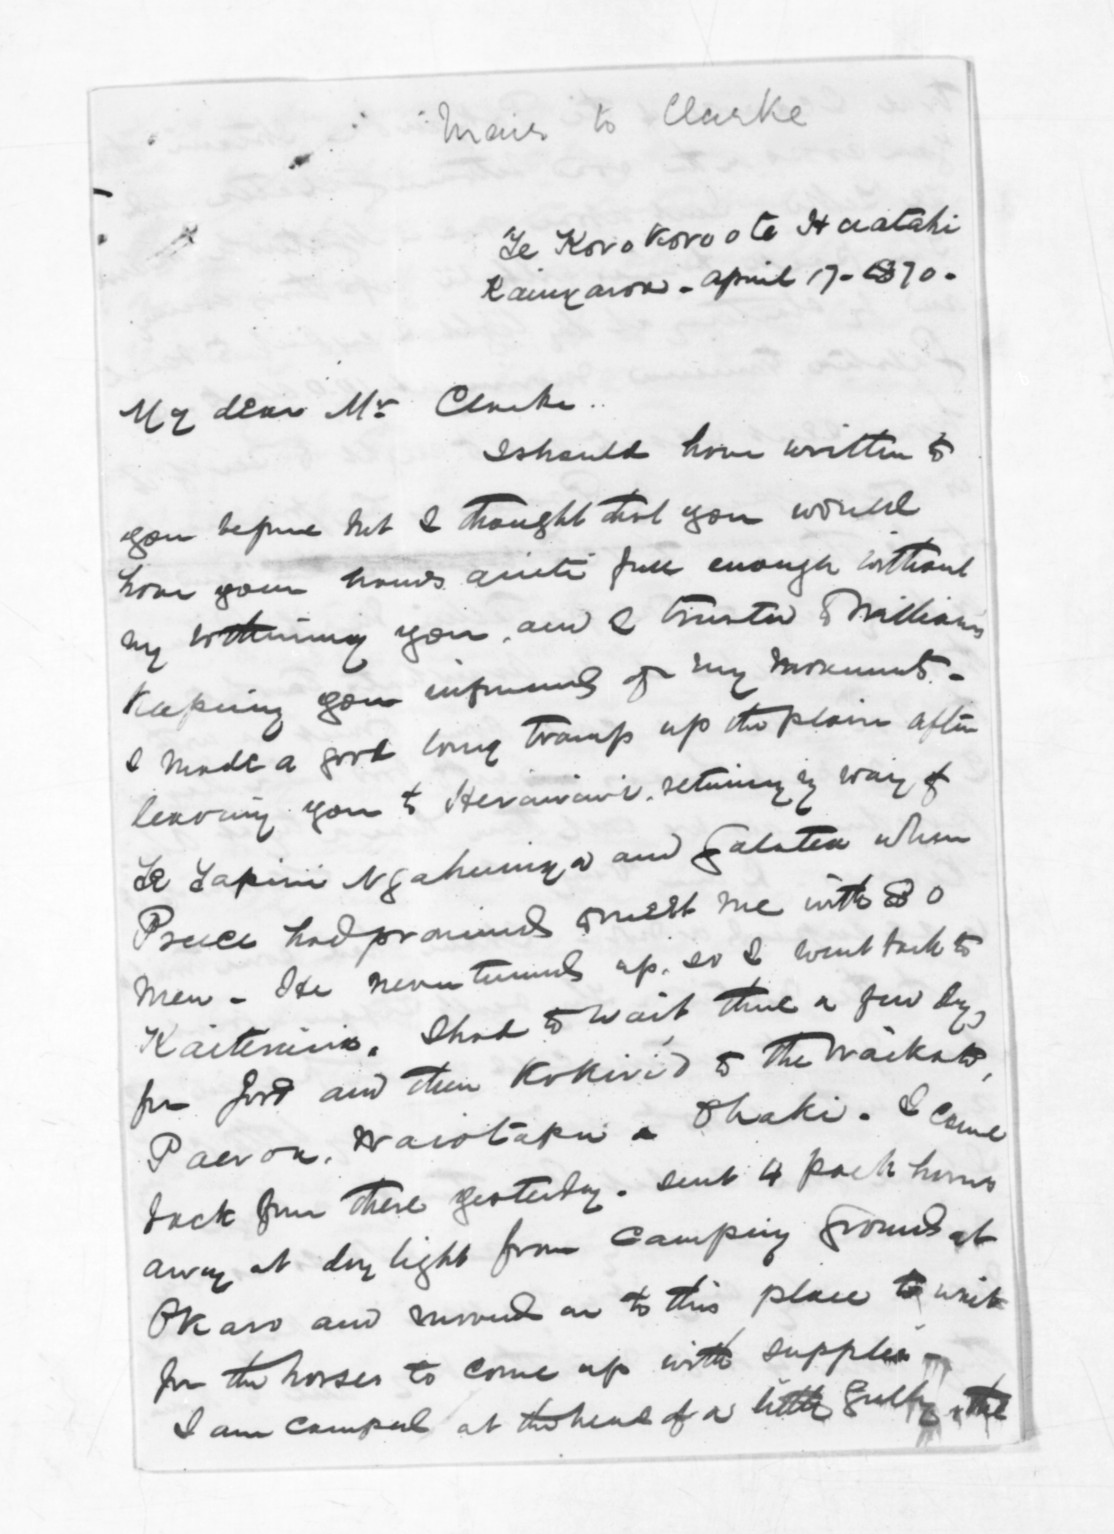 Mair to Clarke
Te Korokoro o te Huatahi
Kaingaroa - april 17 - 1870 -
My dear Mr Clarke..
I should have written to
you before but I thought that you would
have your hands quite full enough without
my bothering you, and I trusted to Williams
keeping you informed of my movements. -
I made a good long tramp up the plain after
leaving you to Heruiwi. returning by way of
Te Tapiri Ngahuinga and Galatea where
Preece had promised to meet me with 80
men - He never turned up, so I went back to
Kaiteriria. I had to wait there a few days
for food and then Kokiri'd to the Waikato,
Paeroa, Waiotapu & Ohaki. I came
back from there yesterday. sent 4 pack horses
away at day light from camping ground at
Okaro and moved on to this place to wait
for the horses to come up with supplies -
I am camped at the head of a little gully, the